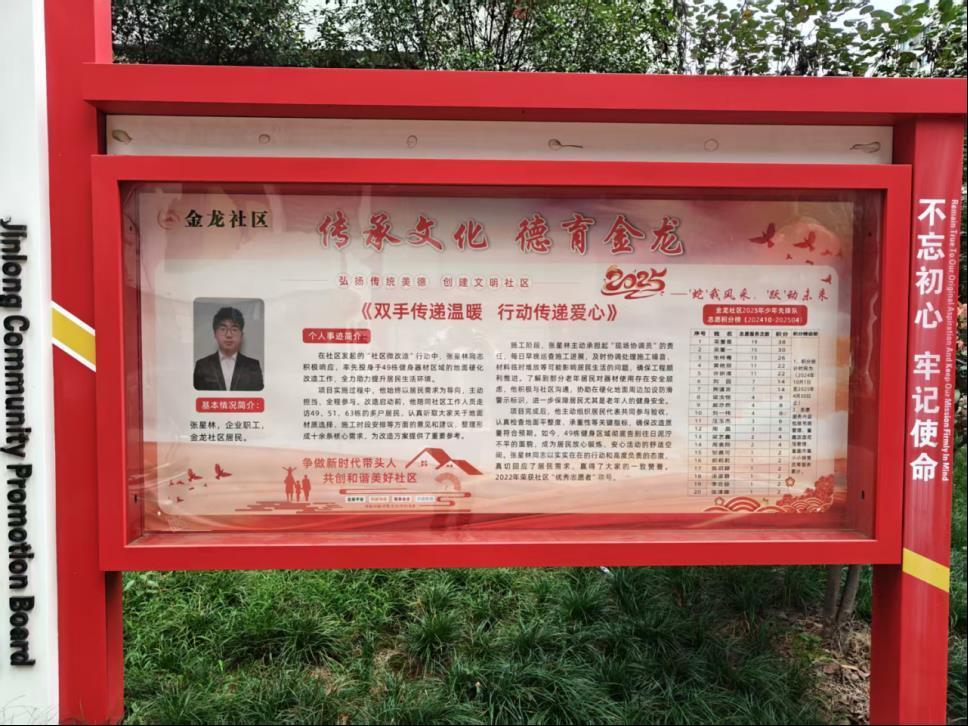 Jinlong Community Promotion Board
金龙社区
传承文化 德育金龙
弘扬传统美德 创建文明社区
2025
——'蛇'我风采,'跃'动未来
《双手传递温暖 行动传递爱心》
基本情况简介:
张星林,企业职工,
金龙社区居民。
个人事迹简介:
在社区发起的“社区微改造”行动中,张星林同志
积极响应,率先投身于49栋健身器材区域的地面硬化
改造工作,全力助力提升居民生活环境。
项目实施过程中,他始终以居民需求为导向,主动
担当、全程参与。改造启动前,他陪同社区工作人员走
访49、51、63栋的多户居民,认真听取大家关于地面
材质选择、施工时段安排等方面的意见和建议,整理形
成十余条核心需求,为改造方案提供了重要参考。
施工阶段,张星林主动承担起“现场协调员”的责
任,每日早晚巡查施工进展,及时协调处理施工噪音、
材料临时堆放等可能影响居民生活的问题,确保工程顺
利推进。了解到部分老年居民对器材使用存在安全顾
虑,他积极与社区沟通,协助在硬化地面周边加设防滑
警示标识,进一步保障居民尤其是老年人的健身安全。
项目完成后,他主动组织居民代表共同参与验收,
认真检查地面平整度、承重性等关键指标,确保改造质
量符合预期。如今,49栋健身区域彻底告别往日泥泞
不平的面貌,成为居民放心锻炼、安心活动的舒适空
间。张星林同志以实实在在的行动和高度负责的态度,
真切回应了居民需求,赢得了大家的一致赞誉。
2022年荣获社区“优秀志愿者”称号。
争做新时代带头人
共创和谐美好社区
金龙社区2025年少年先锋队
志愿积分榜(202410-202504)
序号 姓名 志愿服务次数 积分 积分榜说明
不忘初心 牢记使命
Remain True To Our Original Aspiration And Keep Our Mission Firmly In Mind